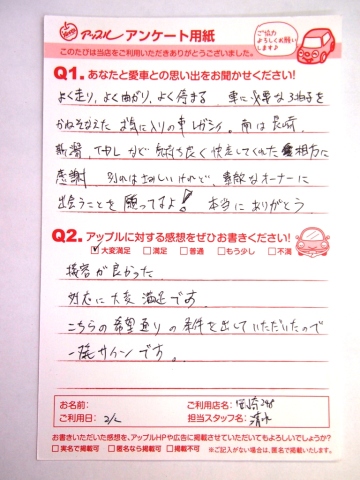 アップル アンケート用紙
ご協力
よろしくお願い
します♪
このたびは当店をご利用いただきありがとうございました。
Q1. あなたと愛車との思い出をお聞かせください!
よく走り、よく曲がり、よく停まる 車に必要な3拍子を
かねそなえた お気に入りの車 レガシィ。南は長崎、
新潟、 など 気持ち良く快走してくれた 相方に
感謝 別れはさみしいけれど、素敵なオーナーに
出会うことを願ってるよ! 本当にありがとう
Q2. アップルに対する感想をぜひお書きください!
大変満足 満足 普通 もう少し 不満
接客が良かった
対応に大変満足です
こちらの希望通りの条件を出していただいたので
一発サインです。
お名前: ご利用店名:岡崎248
ご利用日: 2/2 担当スタッフ名:清水
お書きいただいた感想を、アップルHPや広告に掲載させていただいてもよろしいでしょうか?
実名で掲載可 匿名なら掲載可 掲載不可 ※ご記入がない場合は、匿名で掲載いたします。